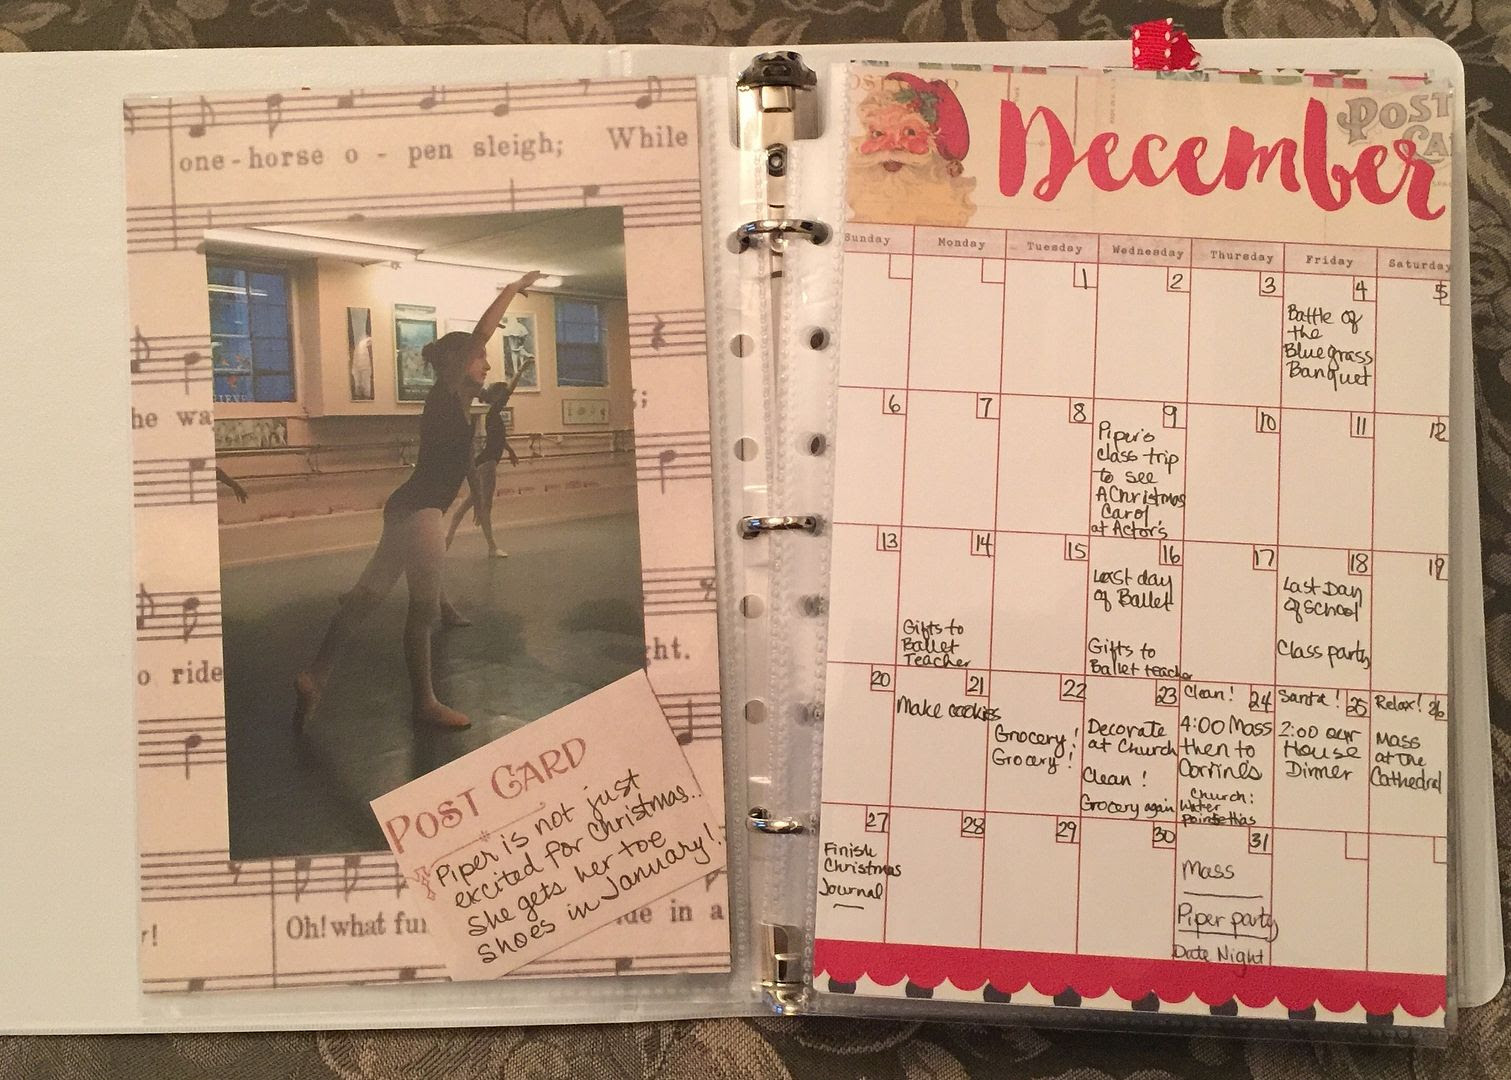 one-horse o - pen sleigh; While
he wa
;
o ride
ght.
Oh! what fu
de in a
r!
POST CARD
Piper is not just
excited for Christmas..
She gets her toe
shoes in January!!
December
POST
CA
Sunday Monday Tuesday Wednesday Thursday Friday Saturday
1 2 3 4 5
Battle of
the
Bluegrass
Banquet
6 7 8 9 10 11 12
Piper's
class trip
to see
A Christmas
Carol
at Actor's
13 14 15 16 17 18 19
Gifts to
Ballet
Teacher
Last day
of Ballet
Gifts to
Ballet teacher
Last Day
of School
Class party
20 21 22 23 24 25 26
Make cookies
Grocery!
Grocery!
Decorate
at Church
Clean!
Grocery again
Clean!
4:00 Mass
then to
Corrine's
Church:
Water
pointsettias
Santa!
2:00 our
House
Dinner
Relax!
Mass
at The
Cathedral
27 28 29 30 31
Finish
Christmas
Journal
Mass
Piper party
Date Night